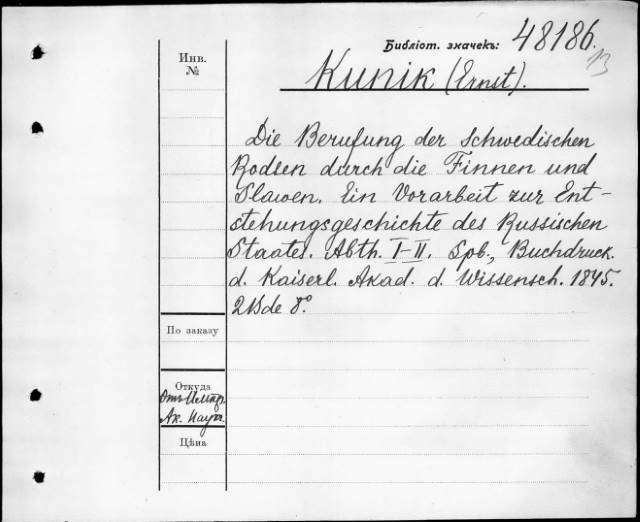 Библіот. значекъ: 48186.
13
Инв.
№
Kunik (Ernst).
Die Berufung der Schwedischen
Rodsen durch die Finnen und
Slawen. Ein Vorarbeit zur Ent-
stehungsgeschichte des Russischen
Staates. Abth. I-II. Spb., Buchdruck.
d. Kaiserl. Akad. d. Wissensch. 1845.
2 Bde 8°.
По заказу
Откуда
Отъ Импр.
Ак. Наукъ.
Цѣна